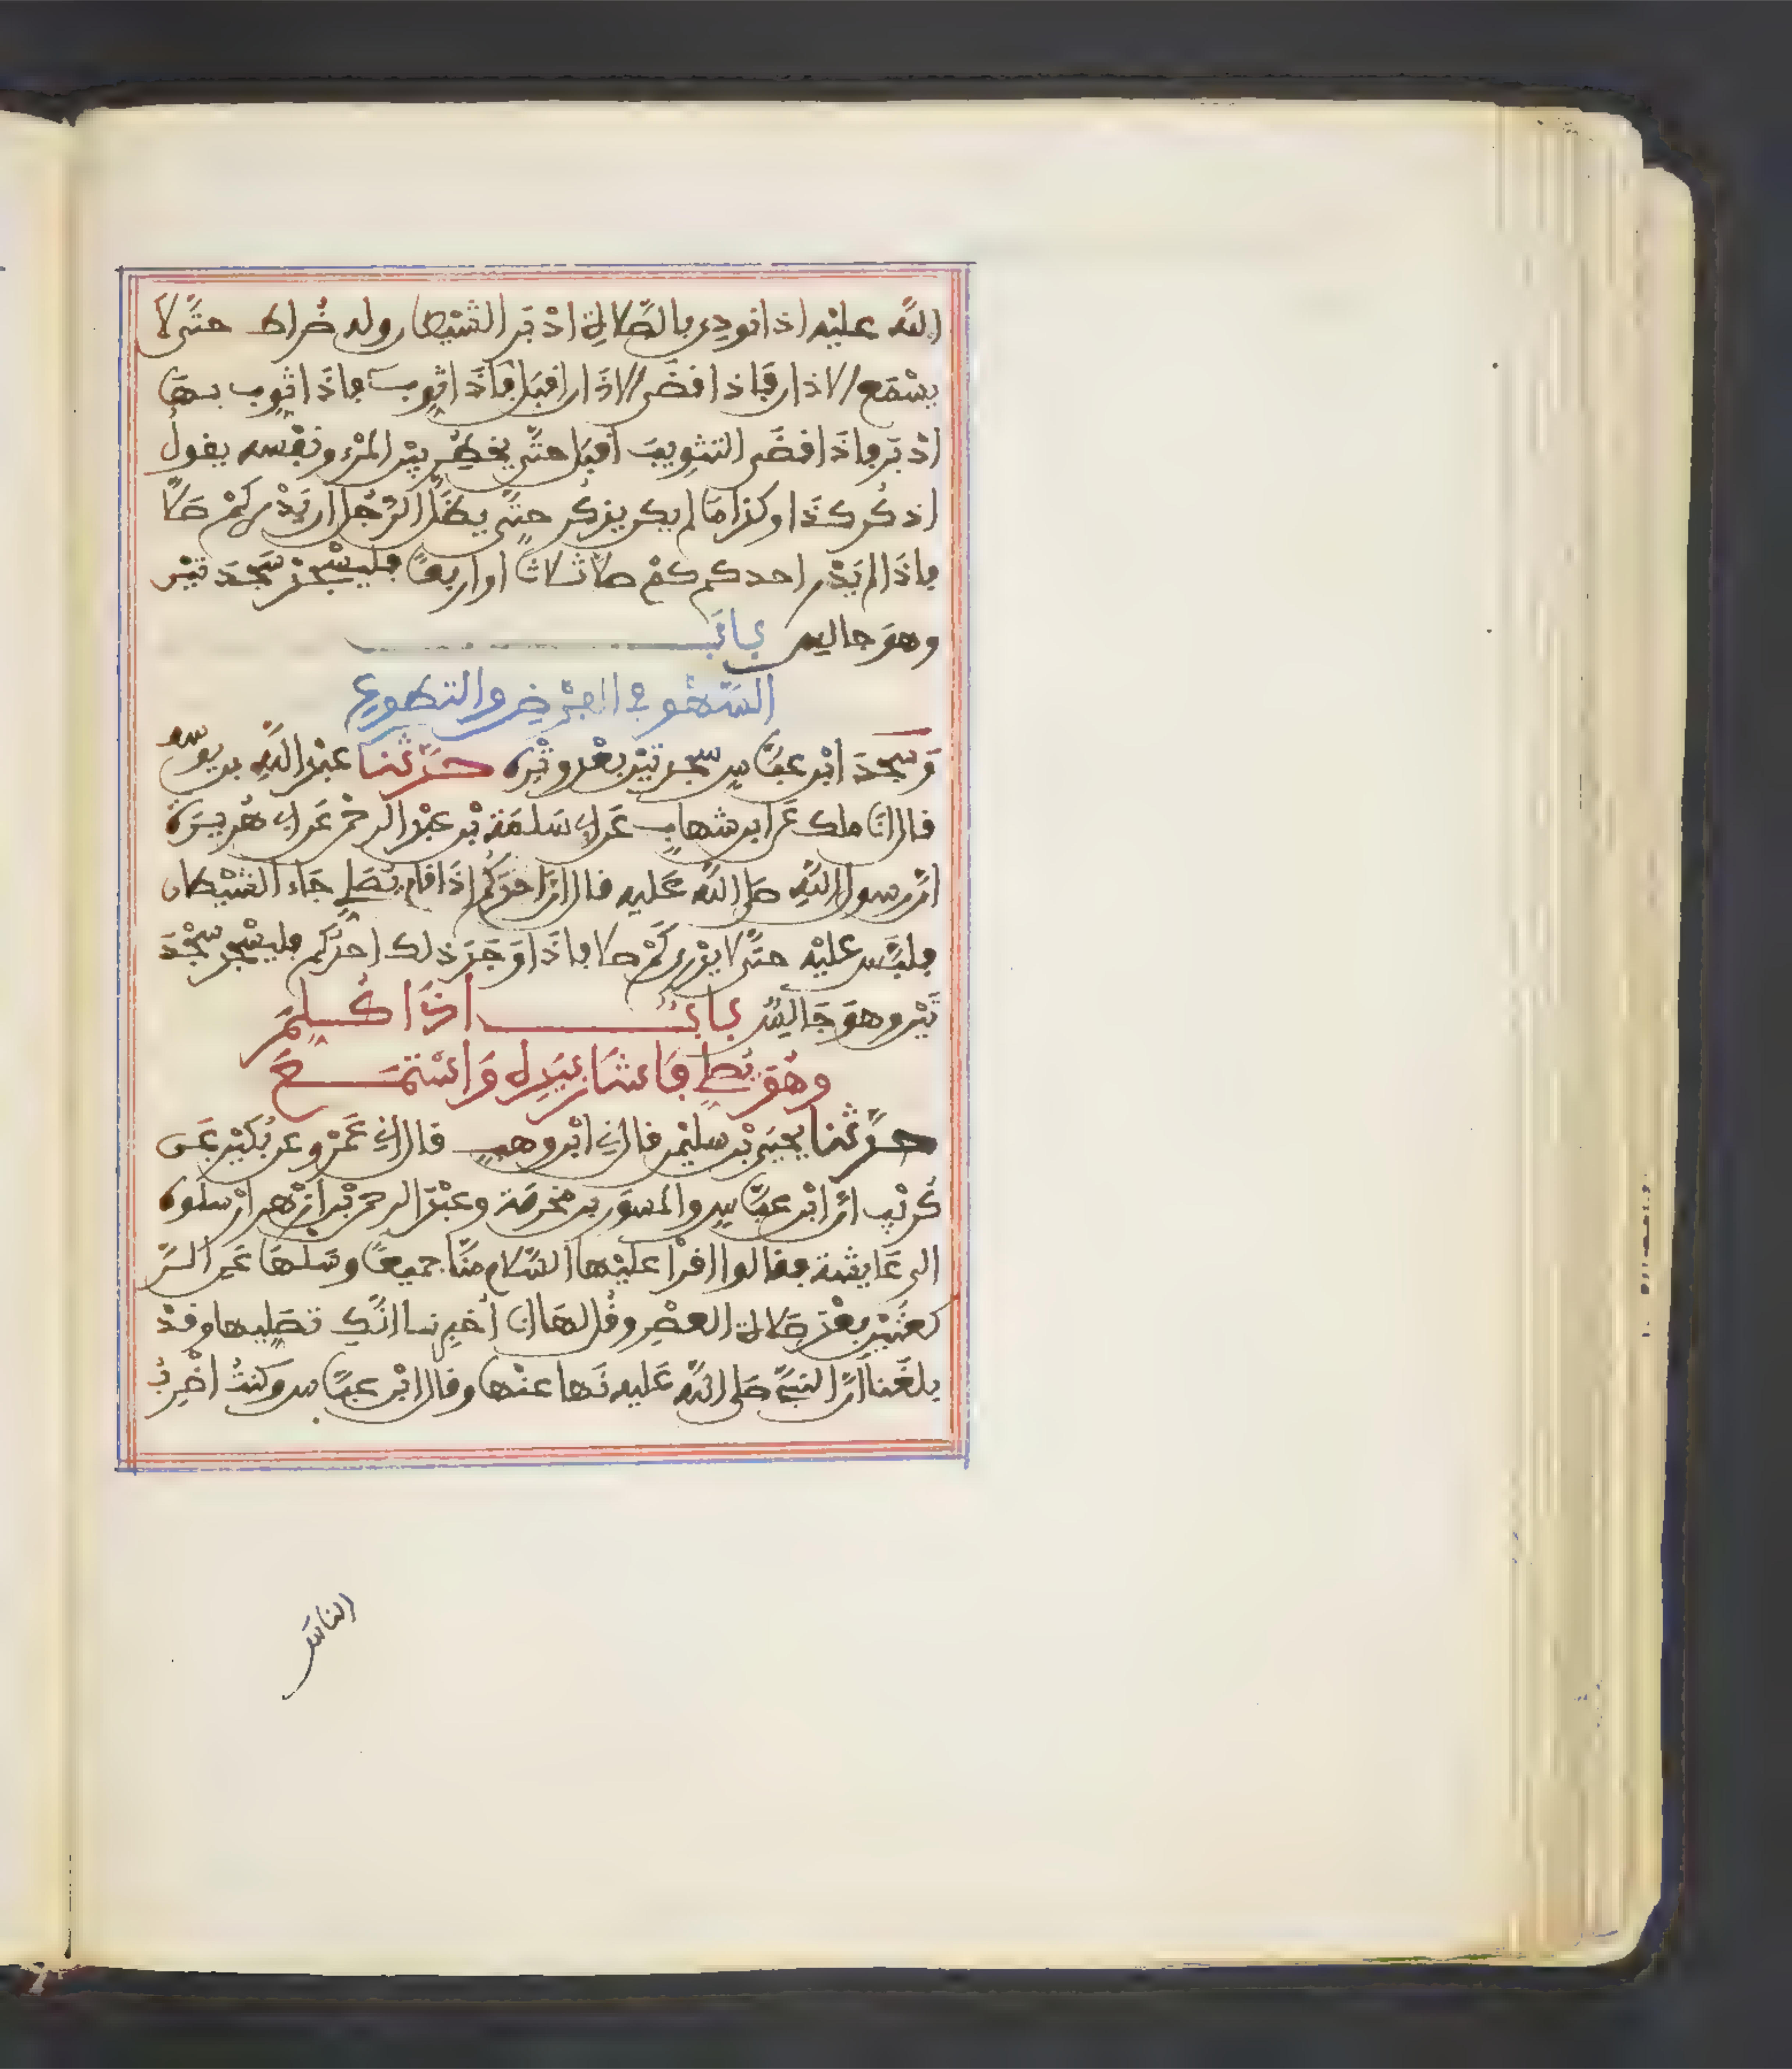 الله عليه اذا نودي بالصّلاة ادْبَر الشيْطان وله ضُراط حتّى لا
يسْمَع الاذان فإذا قضَى الاذان اقبَل فإذَا ثوب فإذا ثوب بهَا
ادْبَر فإذَا قضَى التثويبَ اقبَل حتّى يخطر بيْن المرْء ونفْسه يقول
اذكُر كذَا وكذا مَا لم يكن يذكُر حتّى يظَلّ الرّجُل ان يَدْرِ كمْ صَلّا
فإذَا لم يَدْرِ احدكم كمْ صلا ثلاثا او اربعًا فليسْجُدْ سَجْدَتيْن
وهوَ جالس بابٌ
السّهْو في الفرْضِ والتطوع
وَسَجَدَ ابْن عبّاسٍ سجْدتيْن بعْد وتْره حدّثنا عبْد اللهِ بن يوسُف
قال انا ملك عَن ابن شهابٍ عَن ابي سَلمَة بْن عبْد الرحمٰن عَن ابي هُريرَة
انّ رسول اللهِ صلى اللهُ عَليه قال انّ احدَكُم اذَا قام يُصَلي جَاء الشيْطان
فلبَّس عليْه حتّى لا يدْري كَمْ صلا فإذَا وَجَدَ ذلك احدُكم فليسْجُدْ سجْدَ
تَيْن وهوَ جَالسٌ بابٌ اذَا كُلِّمَ
وهُوَ يُصلي فَاشَارَ بيَدِه وَاسْتمَعَ
حدّثنا يحْيَى بْن سليْمٰن قال ني ابْن وهبٍ قال اني عَمْرو عن بُكيْرٍ عَن
كُرَيْبٍ انّ ابْن عبّاسٍ والمسوَر بن مخرمَة وعبْد الرحمٰن بْن ازْهر ارْسلوه
الى عَايشَة فقالوا اقرأ عليْها السّلام منّا جميعًا وسَلْهَا عَنِ الرّ
كعتيْن بعْدَ صَلاة العصْرِ وقُل لهَا انا اُخبِرنا انّكِ تصَليها وقدْ
بلغَنا انّ النبيّ صَلى اللهُ عَليه نَها عنْها وقال ابْن عبّاس وكنتُ اضْرِبُ
الناسَ